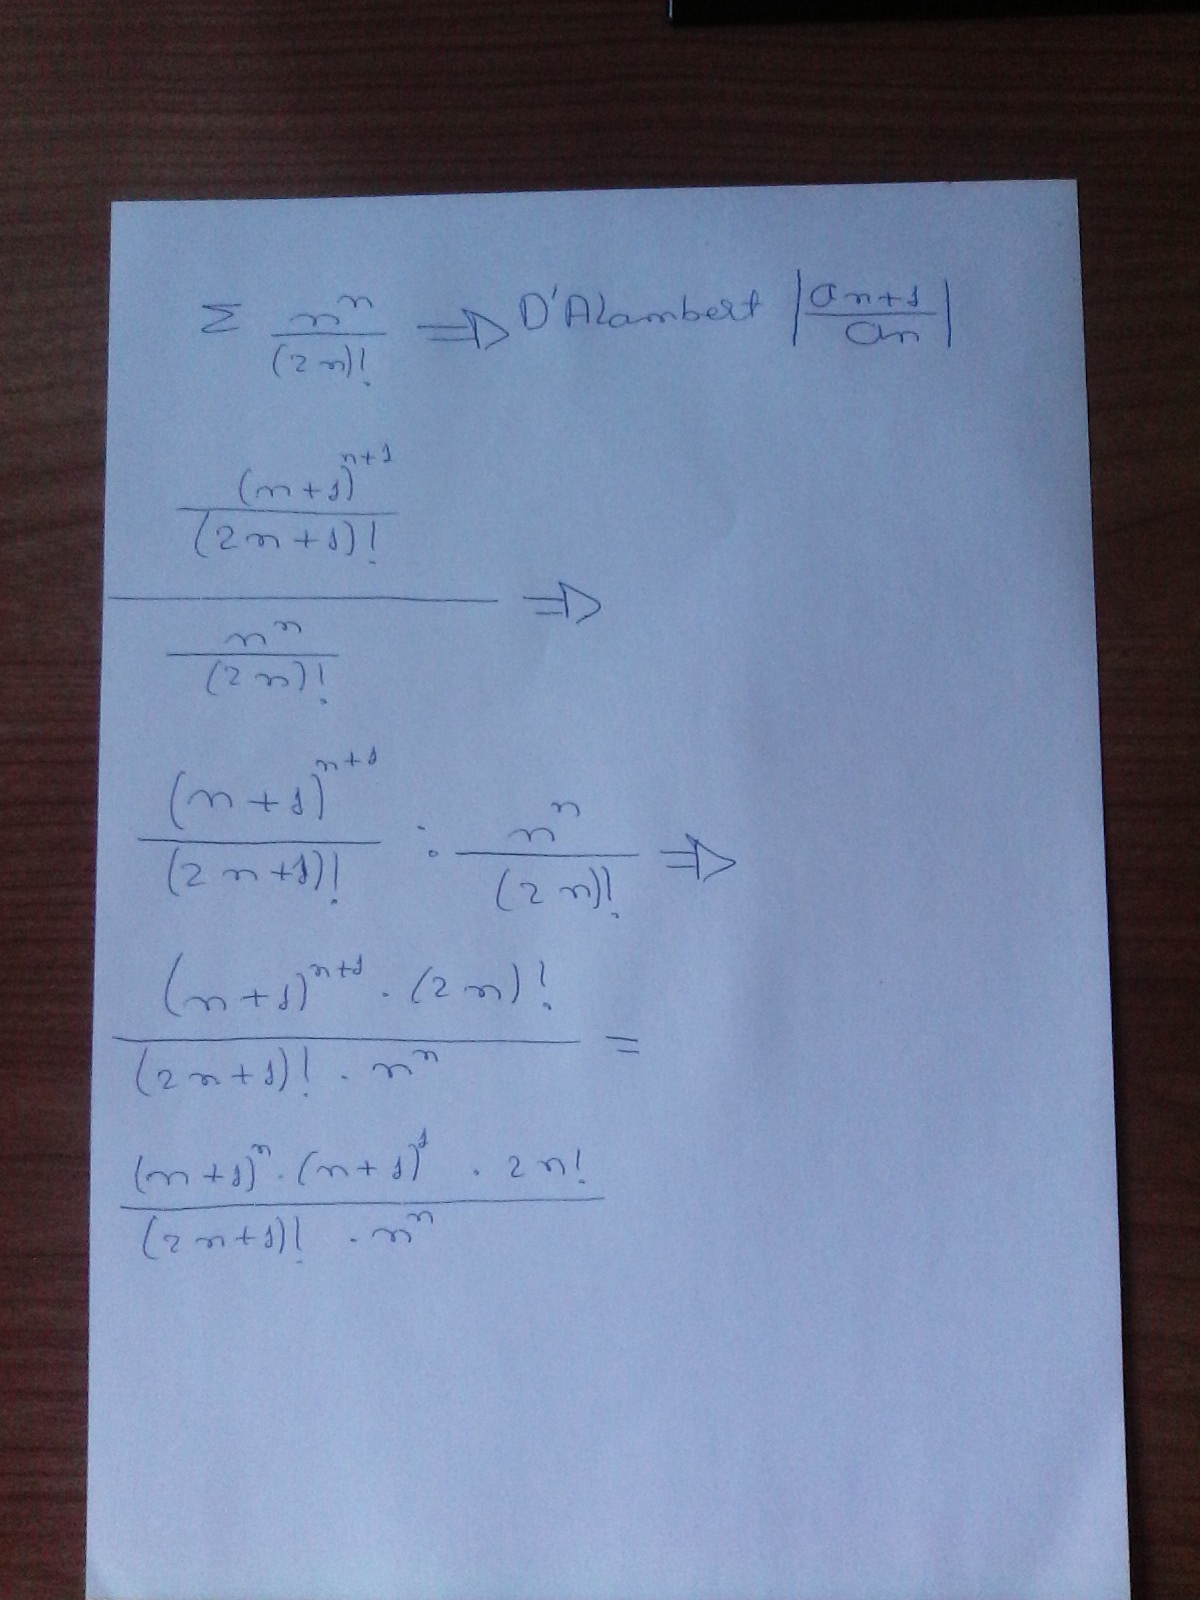 Σ n^n / (2n)! ⇒ D'Alambert |an+1 / an|
(n+1)^n+1
(2n+1)!
⇒
n^n
(2n)!
(n+1)^n+1 / (2n+1)! : n^n / (2n)! ⇒
(n+1)^n+1 · (2n)!
(2n+1)! · n^n
=
(n+1)^n · (n+1)^1 · 2n!
(2n+1)! · n^n